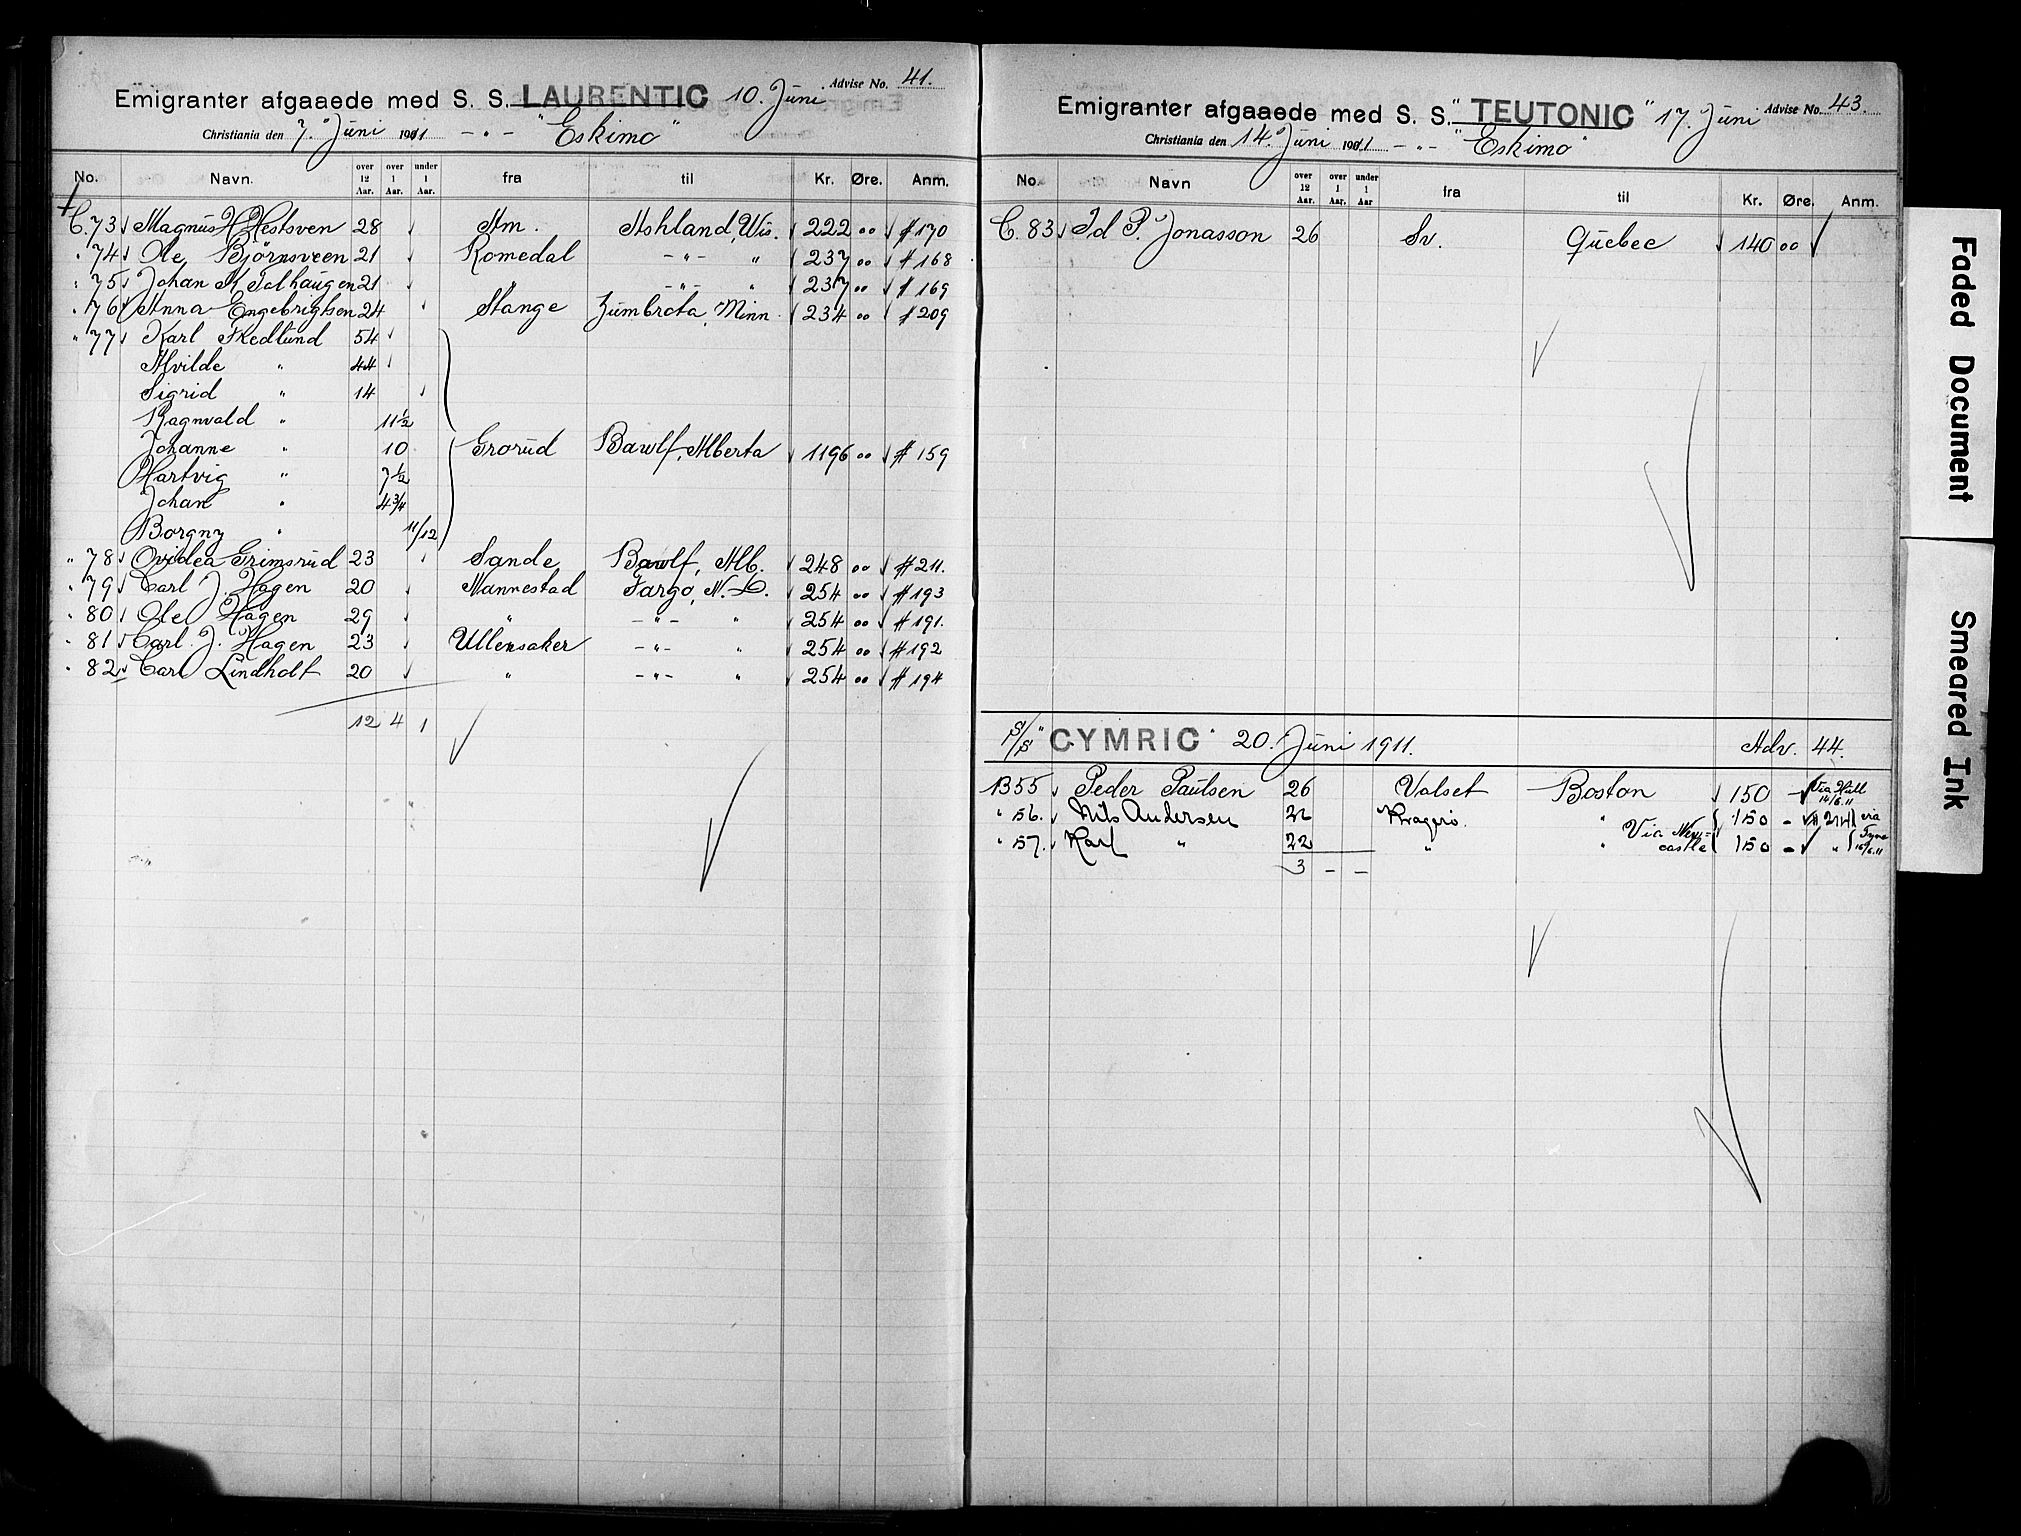 Emigranter afgaaede med S. S. LAURENTIC 10. Juni Advise No. 41.
Christiania den 7. Juni 1911 - " - "Eskimo"
No. Navn. over 12 Aar. over 1 Aar. under 1 Aar. fra til Kr. Øre. Anm.
C. 73 Magnus H Hestsven 28 Am. Ashland, Wis. 222 00 # 170
" 74 Ole Bjørnsveen 21 Romedal - " - " 237 00 # 168
" 75 Johan M. 21 - " - " 237 00 # 169
" 76 Anna Engebrigtsen 24 Stange Zumbrota, Minn 234 00 # 209
" 77 Karl Fredlund 54
Alvilde " 44
Sigrid " 14
Ragnvald " 11 1/2
Johanne " 10 Grorud Bawlf, Alberta 1196 00 # 159
Hartvig " 7 1/2
Johan " 4 3/4
Borgny " 11/12
" 78 Ovidea Grimsrud 23 Sande Bawlf, Alb. 248 00 # 211.
" 79 Carl J. Hagen 20 Mannestad Fargo, N.D. 254 00 # 193
" 80 Ole Hagen 29 " - " - " 254 00 # 191.
" 81 Carl J. Hagen 23 Ullensaker - " - " 254 00 # 192
" 82 Carl Lindholt 20 " - " - " 254 00 # 194
12 4 1
Emigranter afgaaede med S. S. "TEUTONIC" 17. Juni Advise No. 43.
Christiania den 14. Juni 1911 - " - "Eskimo"
No. Navn over 12 Aar. over 1 Aar. under 1 Aar fra til Kr. Øre. Anm.
C. 83 Id P. Jonasson 26 Sv. Quebec 140 00
S/S "CYMRIC" 20. Juni 1911. Adv. 44.
B55 Peder Paulsen 26 Valset Boston 150 - Via Hull 14/6.11
" 56. Nils Andersen 22 Kragerø. " Via Newcastle 150 - # 214 via
" 57. Karl " 22 " " 150 - " Tyne 16/6.11
3 - -
Faded Document
Smeared Ink